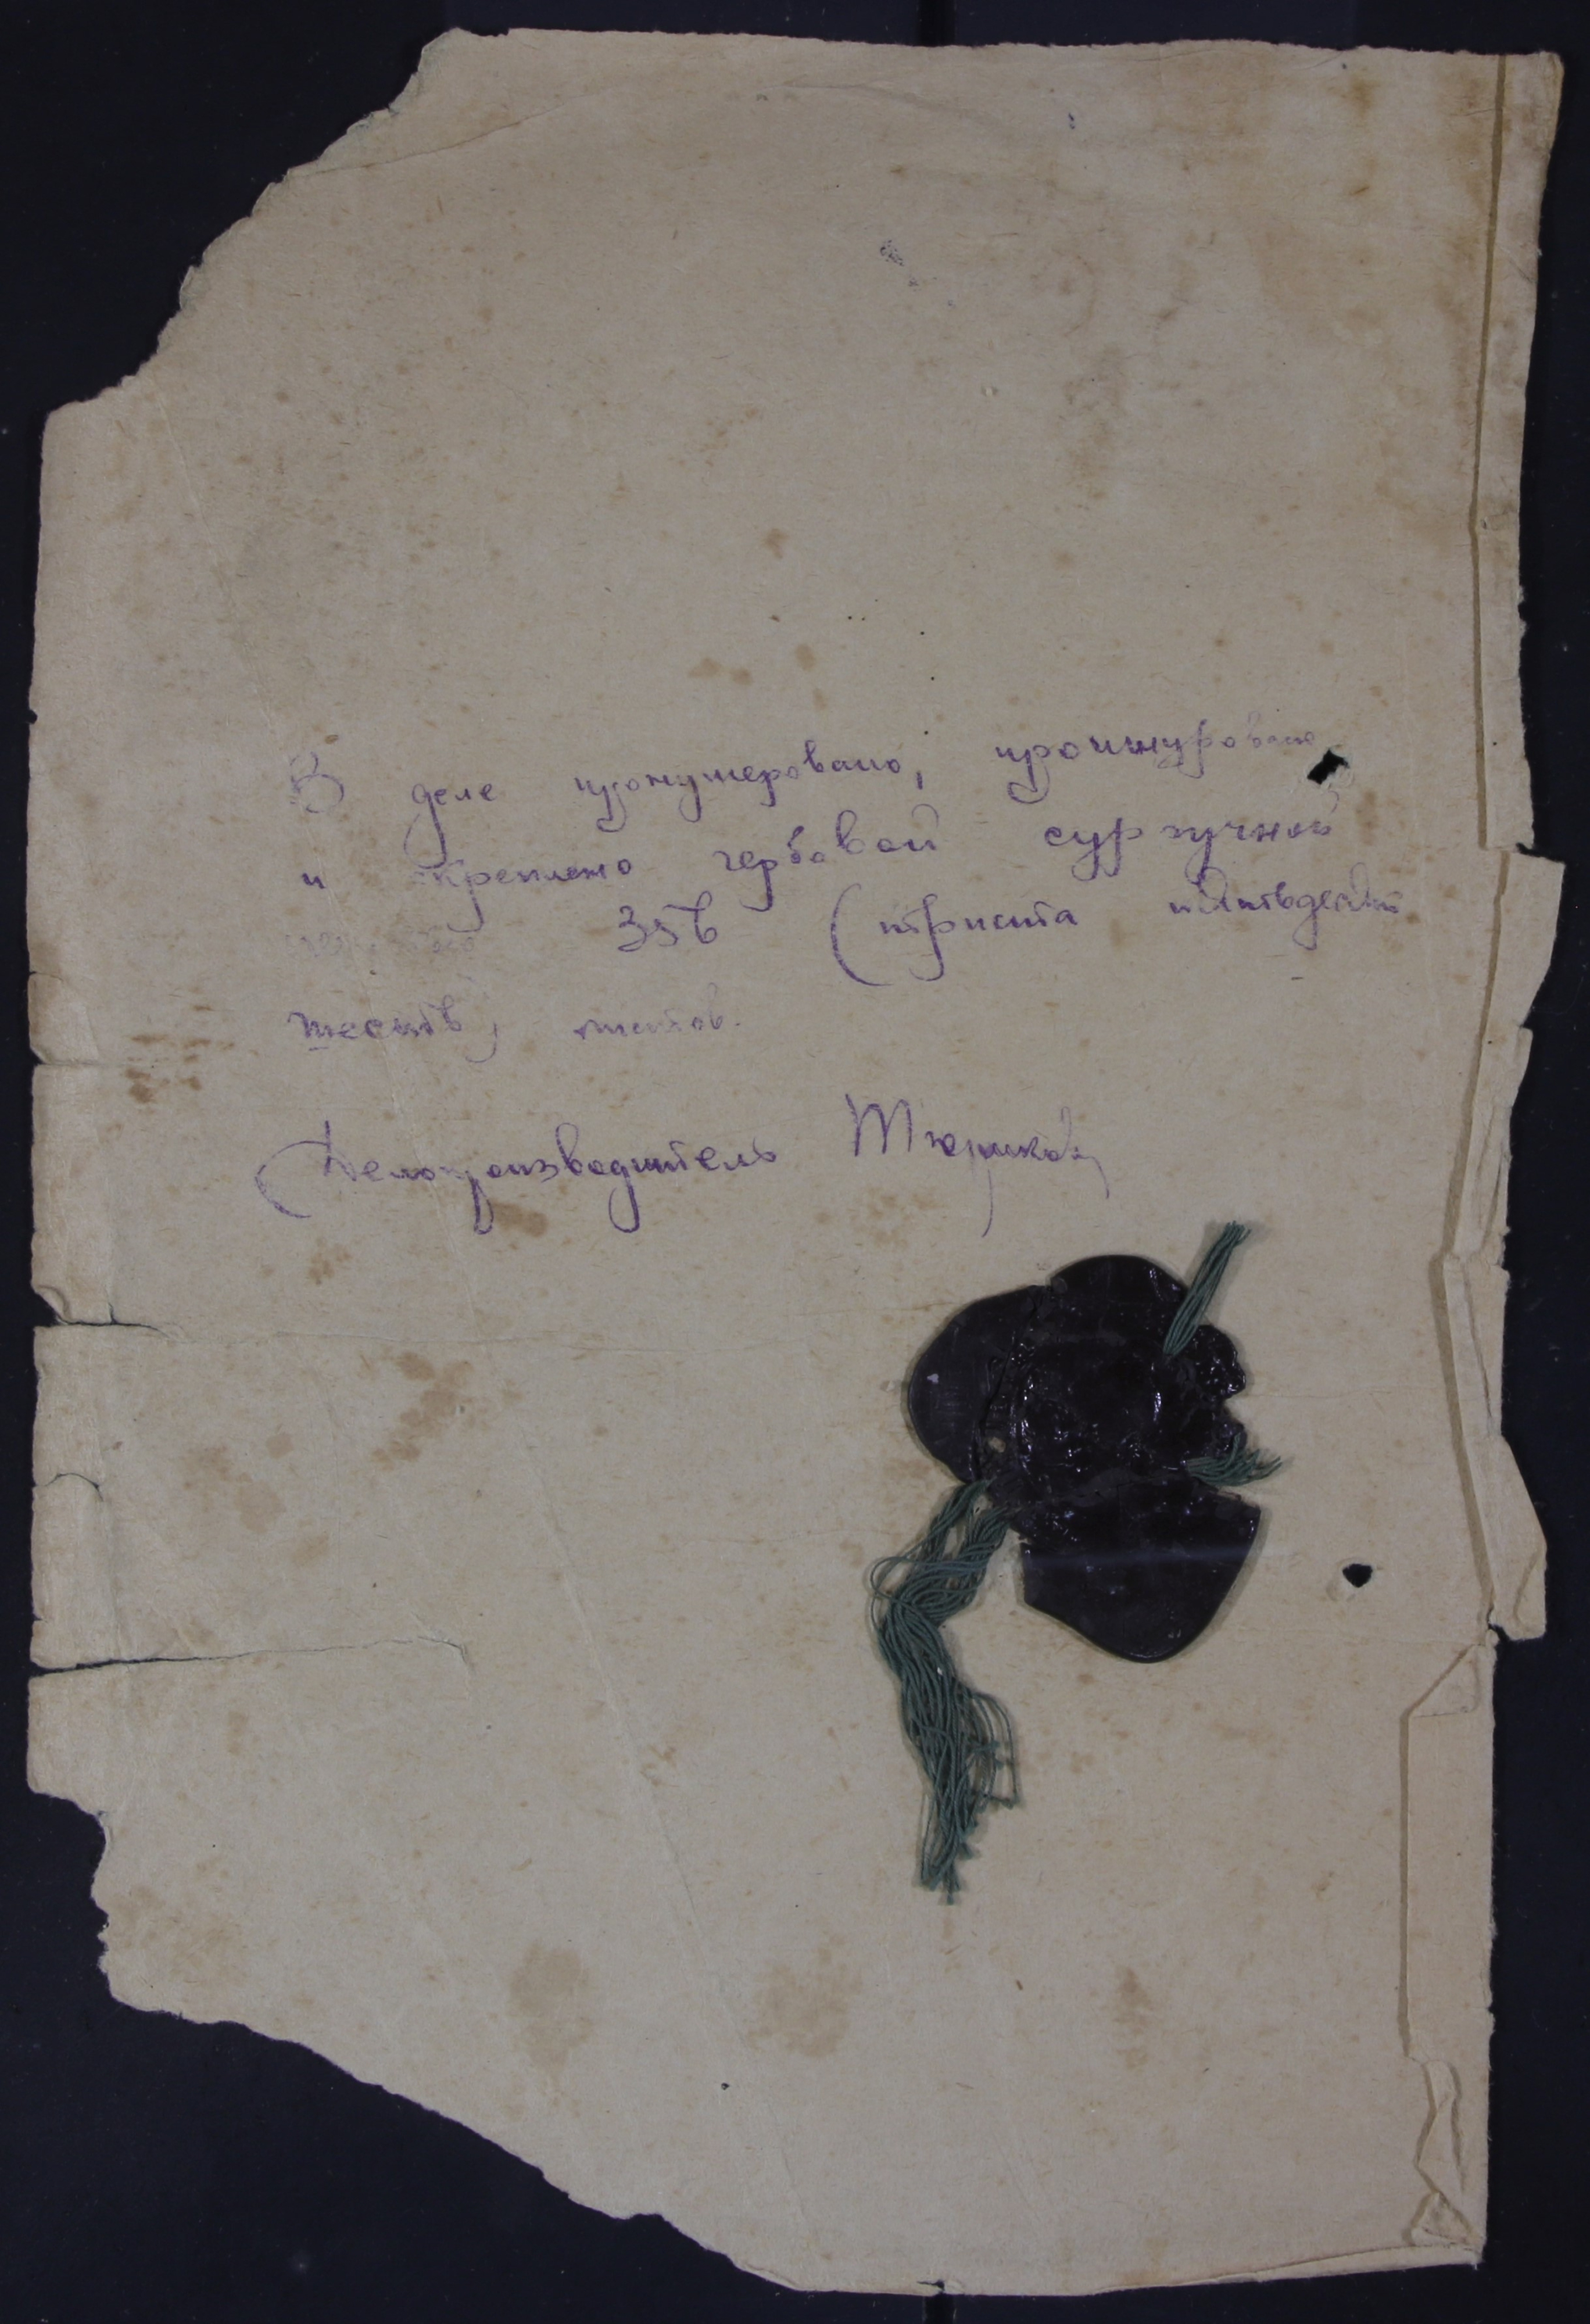 В деле пронумеровано, прошнуровано
и скреплено гербовой сургучной
печатью 356 (триста пятьдесят
шесть) листов.
Делопроизводитель